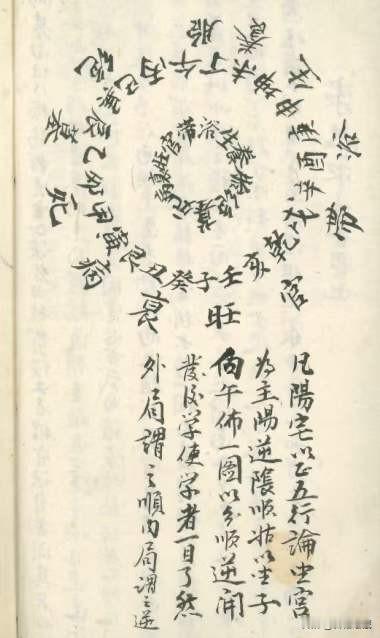 胎養生浴帶官旺衰病死墓絕
壬子癸丑艮寅甲卯乙辰巽巳丙午丁未坤申庚酉辛戌乾亥
官帶浴生養胎絕墓死病衰旺
凡陽宅以正五行論坐宮
為主陽逆陰順姑以坐子
向午佈一圖以分順逆開
發後学使学者一目了然
外局謂之順內局謂之逆